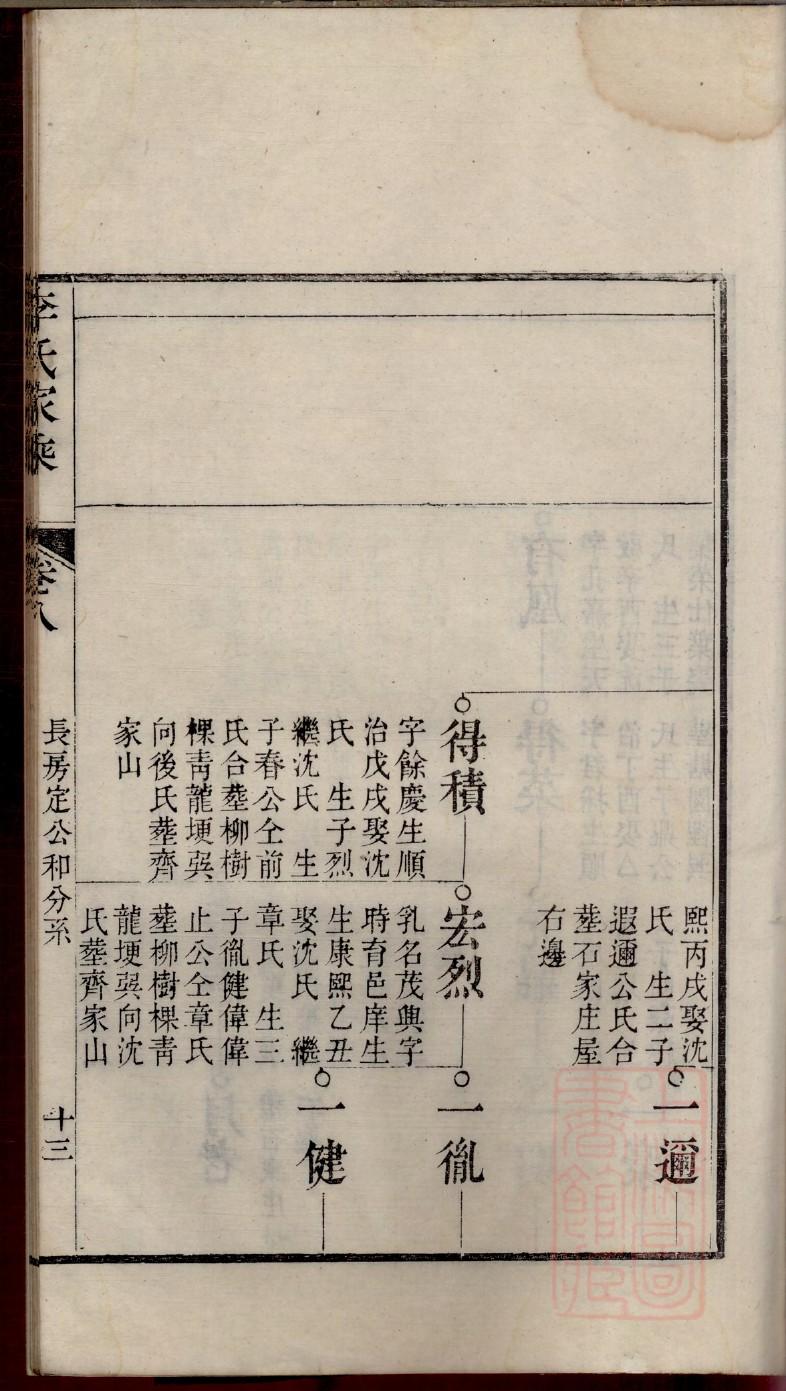 熙丙戌娶沈
氏 生二子
遐邇公氏合
塟石家庄屋
右邊
一邇
得積
字餘慶生順
治戊戌娶沈
氏 生子烈
繼沈氏 生
子春公仝前
氏合塟柳樹
棵靑龍埂巽
向後氏塟齊
家山
宏烈
乳名茂興字
時育邑庠生
生康熙乙丑
娶沈氏 繼
章氏 生三
子胤健偉偉
止公仝章氏
塟柳樹棵靑
龍埂巽向沈
氏塟齊家山
一胤
一健
李氏家乘
卷八
長房定公和分系
十三